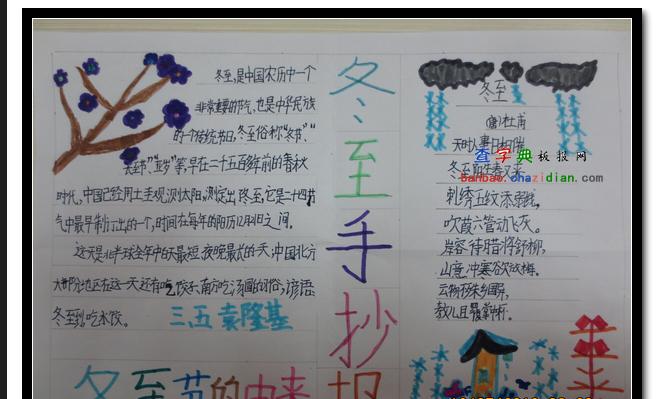 冬至,是中国农历中一个
非常重要的节气,也是中华民族
的一个传统节日,冬至俗称“冬节”、“
长至节”、“亚岁”等,早在二十五百多年前的春秋
时代,中国已经用土圭观测太阳,测定出冬至,它是二十四节
气中最早制订出的一个,时间在每年的阳历12月22日之间,
这天是北半球全年中白天最短、夜晚最长的一天,中国北方
大部分地区在这一天还有吃饺子、南方吃汤圆的习俗,谚语:
冬至到,吃水饺。
三五 袁隆基
冬至节的由来
冬至手抄报
冬至
(唐)杜甫
天时人事日相催
冬至阳生春又来
刺绣五纹添弱线,
吹葭六管动飞灰。
岸容待腊将舒柳,
山意冲寒欲放梅。
云物不殊乡国异,
教儿且覆掌中杯。
查字典板报网
banbao.chazidian.com